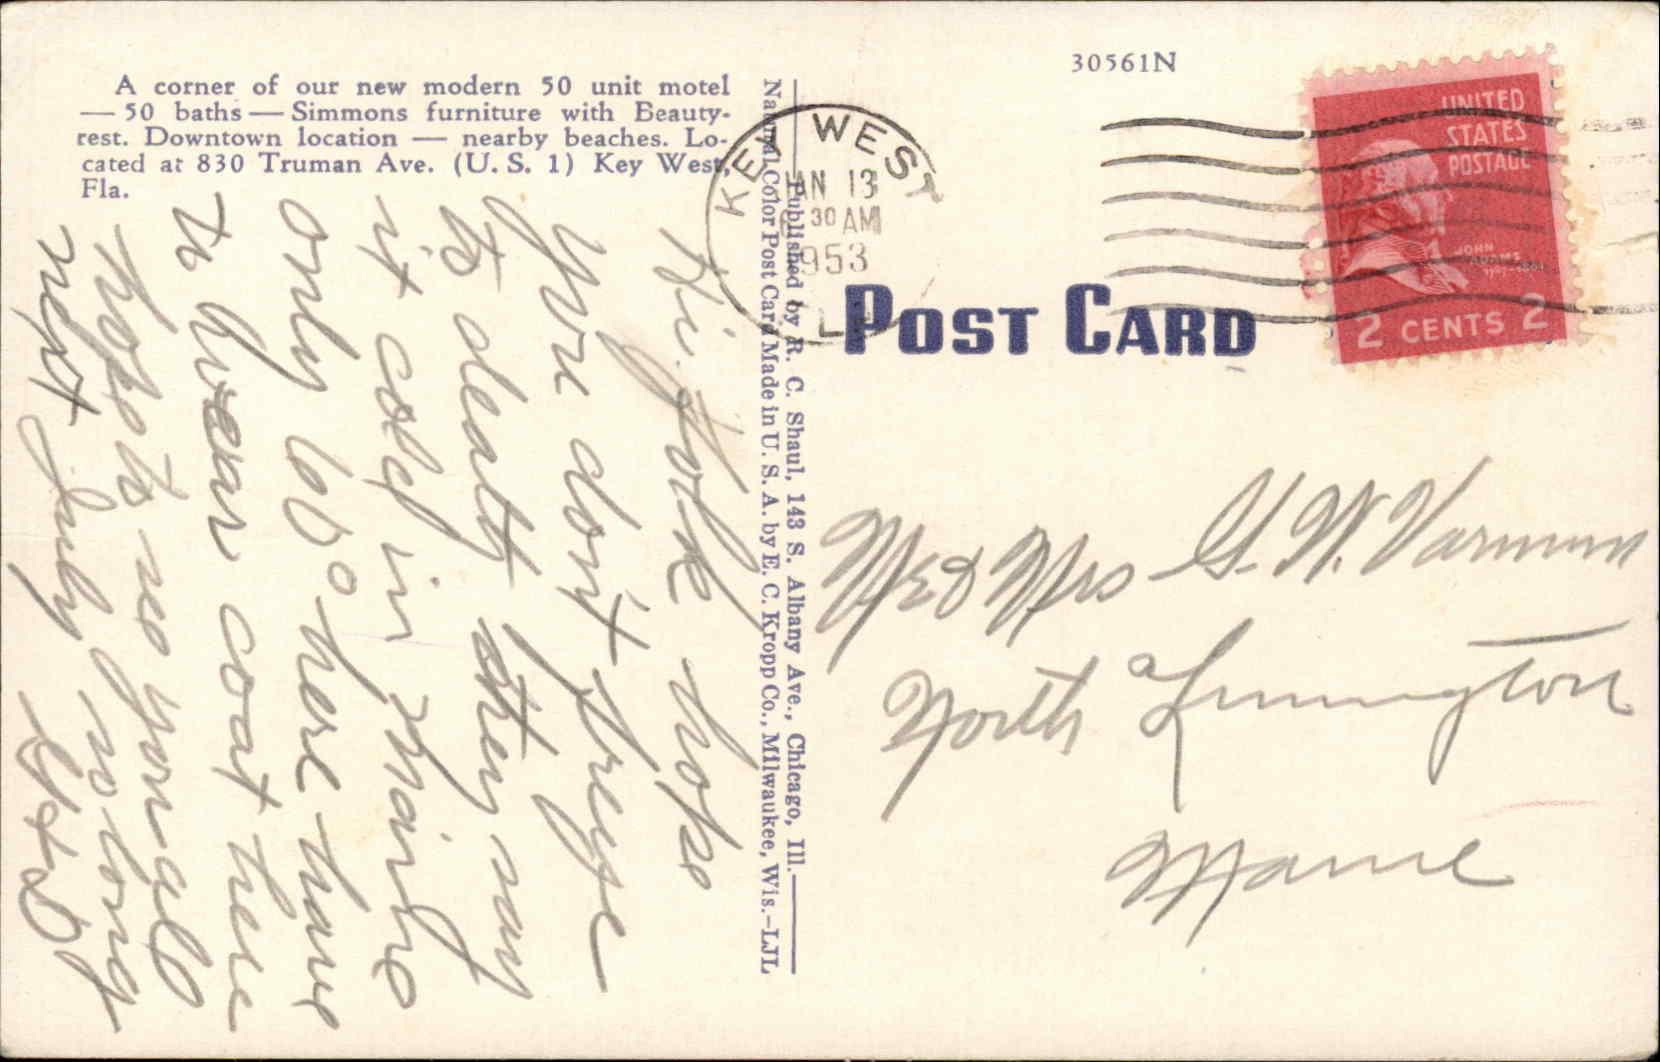 A corner of our new modern 50 unit motel
— 50 baths — Simmons furniture with Beauty-
rest. Downtown location — nearby beaches. Lo-
cated at 830 Truman Ave. (U. S. 1) Key West,
Fla.
Hi. Folk hope
you don't freeze
to death they say
it cold in Maine
only 60° here have
to wear coat here
hope to see you all
next July so long
G & D
Published by R. C. Shaul, 143 S. Albany Ave., Chicago, Ill.
Natural Color Post Card Made in U. S. A. by E. C. Kropp Co., Milwaukee, Wis.-LJL
30561N
KEY WEST
JAN 13
30 AM
1953
FLA
UNITED
STATES
POSTAGE
JOHN
ADAMS
2 CENTS 2
POST CARD
Mr & Mrs G. W. Varnum
North Limington
Maine